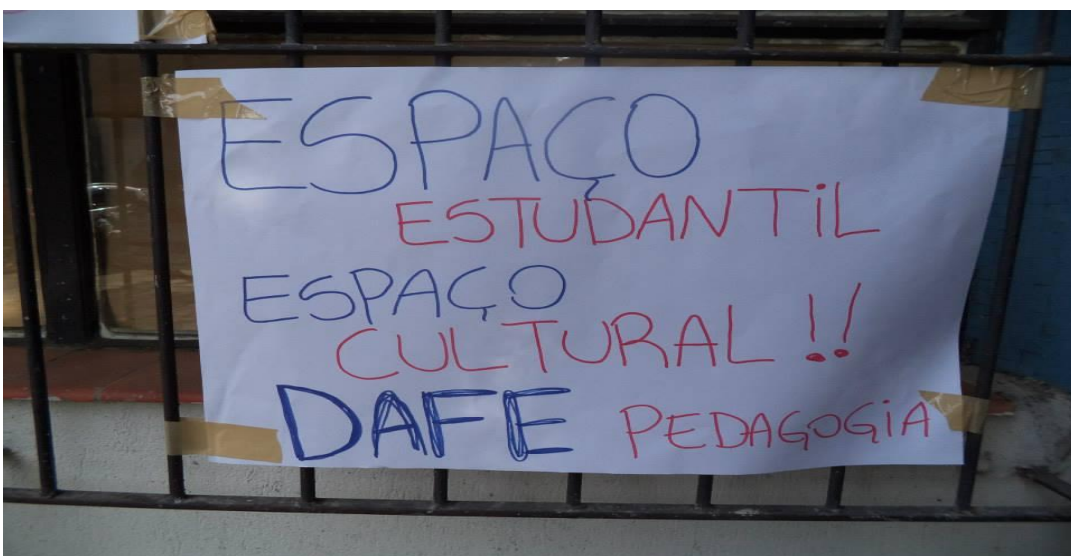 ESPAÇO
ESTUDANTiL
ESPAÇO
CULTURAL!!
DAFE PEDAGOGiA